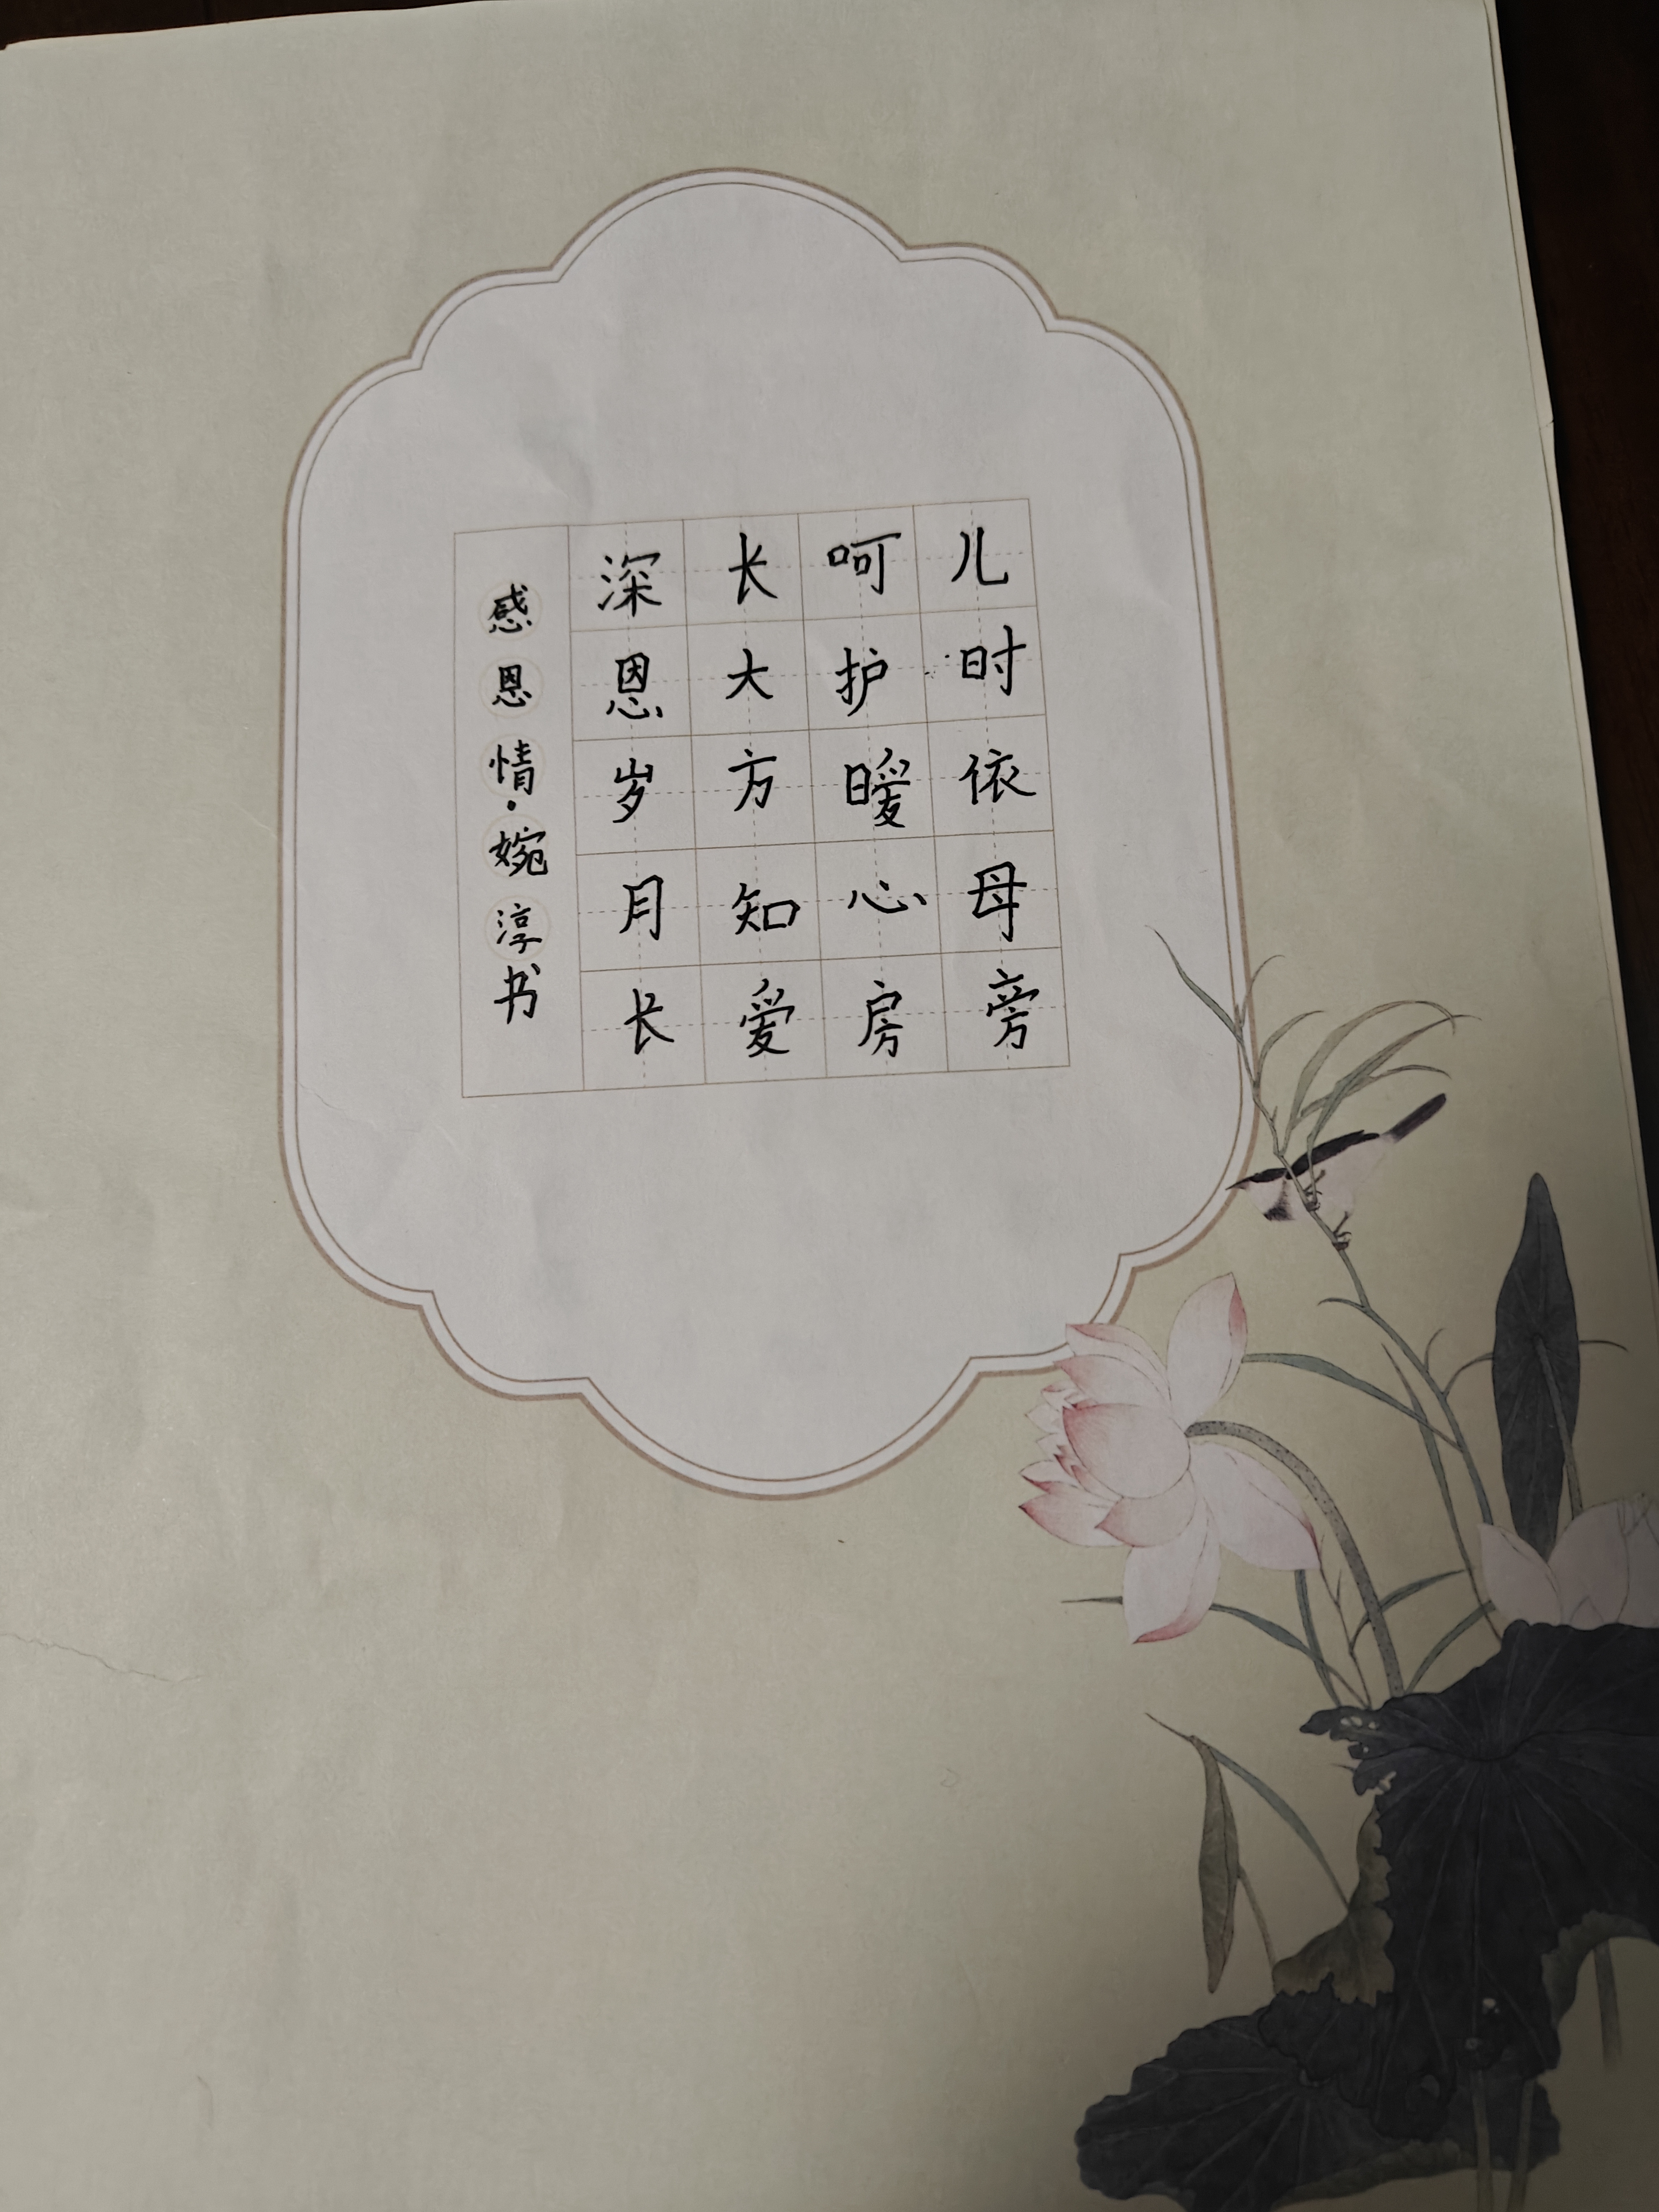 儿时依母旁
呵护暖心房
长大方知爱
深恩岁月长
感恩情·婉淳书